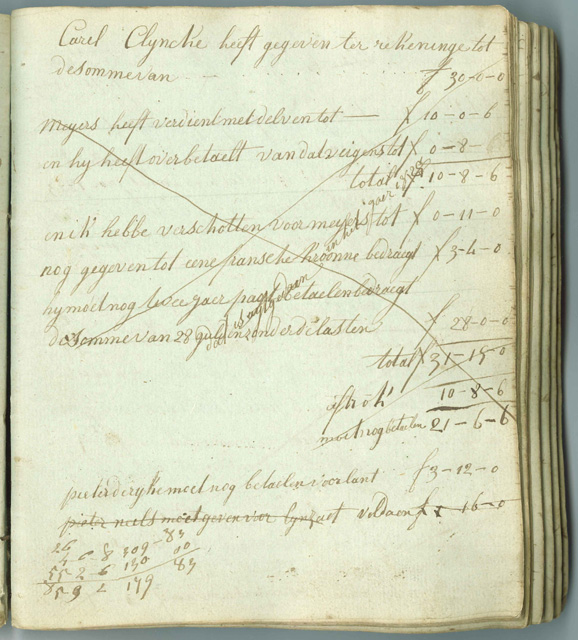 Carel Clyncke heeft gegeven ter rekeninge tot
de somme van - - f 30-0-0
Meyers heeft verdient met delven tot — f 10-0-6
en hy heeft overbetaelt van dalveigens tot f 0-8-
total f 10-8-6
en ik hebbe verschotten voor meyers tot f 0-11-0
nog gegeven tot eene fransche kroonne bedragt f 3-4-0
hy moet nog twee jaer pagt betaelen bedragt
de somme van 28 gulden zonder de lasten f 28-0-0
total f 31-15-0
10-8-6
moet nog betaelen 21-6-6
in het jaer
pieter deryke moet nog betaelen voor lant f 3-12-0
pieter neels moet geven voor lynzaet voldaen f 1-16-0
26
6 8 309-83
55 2 6 130 00
179 83